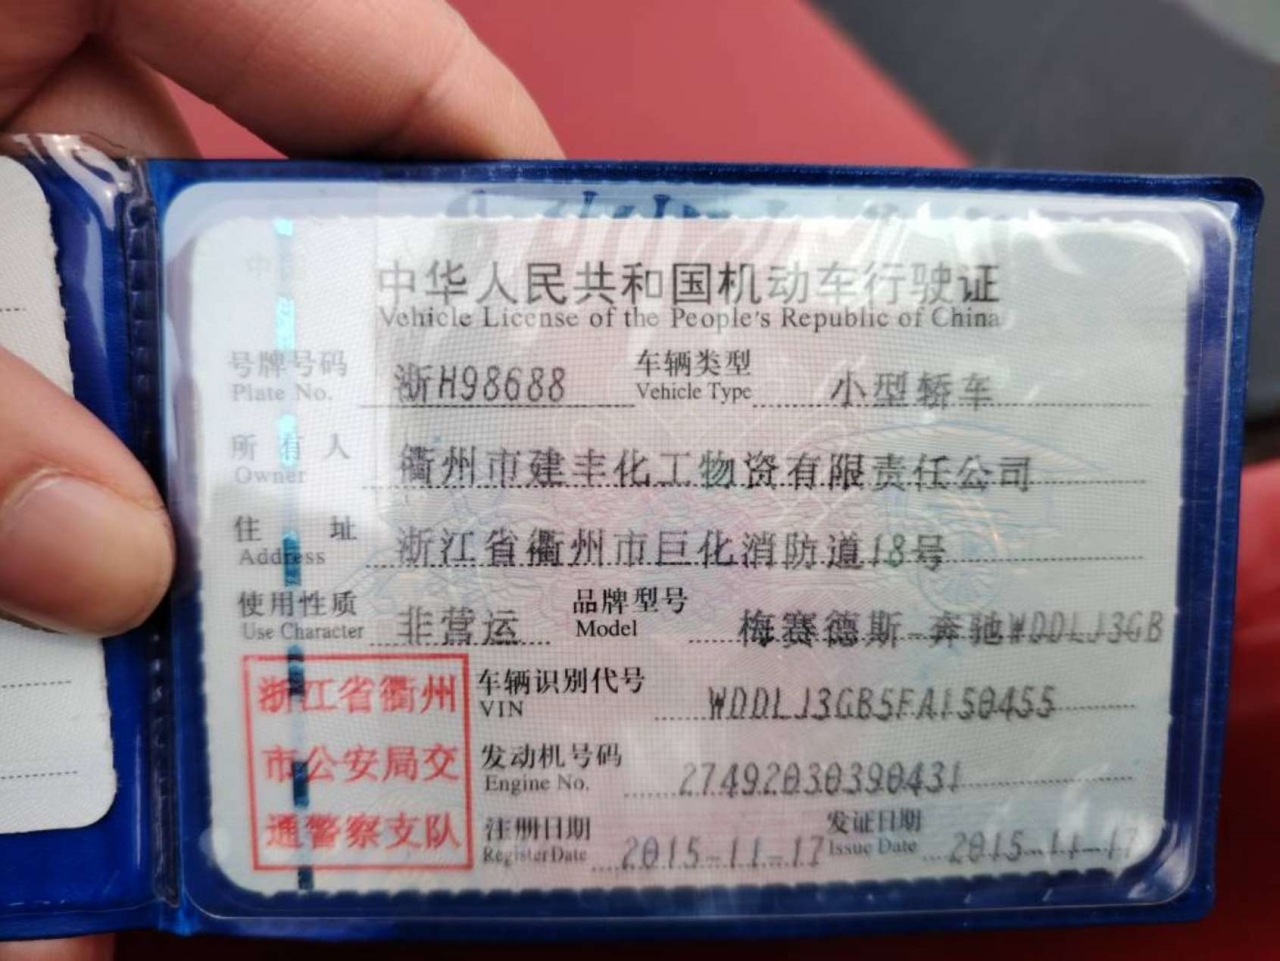 中华人民共和国机动车行驶证
Vehicle License of the People's Republic of China
号牌号码 浙H98688 车辆类型 小型轿车
Plate No. Vehicle Type
所有人 衢州市建丰化工物资有限责任公司
Owner
住址 浙江省衢州市巨化消防道18号
Address
使用性质 非营运 品牌型号 梅赛德斯-奔驰WDDLJ3GB
Use Character Model
浙江省衢州
市公安局交
通警察支队
车辆识别代号 WDDLJ3GB5FA150455
VIN
发动机号码 27492030390431
Engine No.
注册日期 2015-11-17 发证日期 2015-11-17
Register Date Issue Date